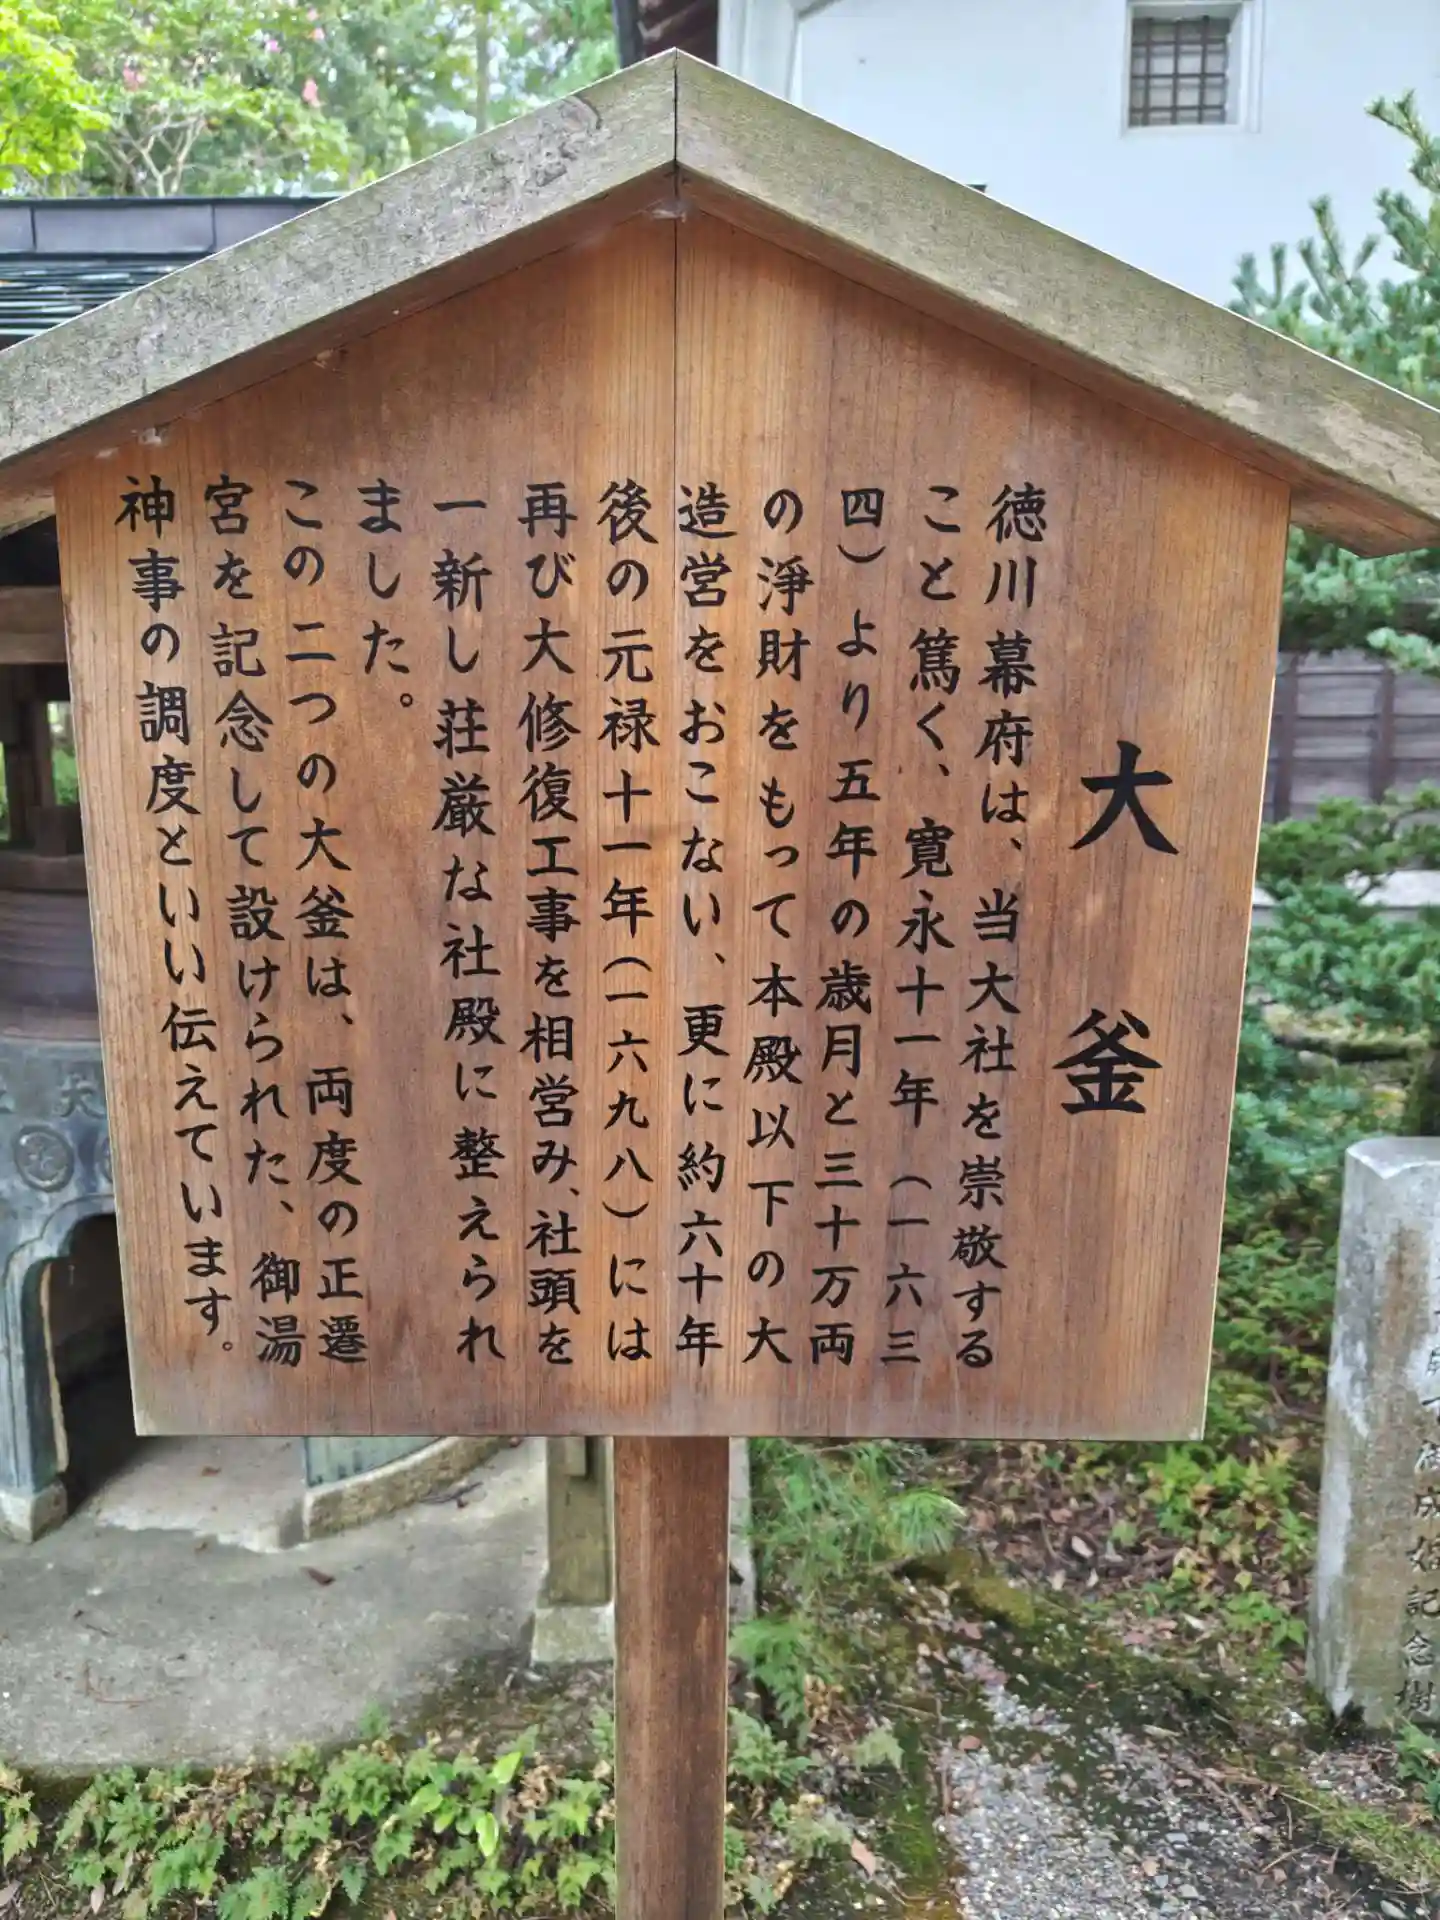 大釜
徳川幕府は、当大社を崇敬する
こと篤く、寛永十一年（一六三
四）より五年の歳月と三十万両
の淨財をもって本殿以下の大
造営をおこない、更に約六十年
後の元禄十一年（一六九八）には
再び大修復工事を相営み、社頭を
一新し荘厳な社殿に整えられ
ました。
この二つの大釜は、両度の正遷
宮を記念して設けられた、御湯
神事の調度といい伝えています。
御成婚記念樹